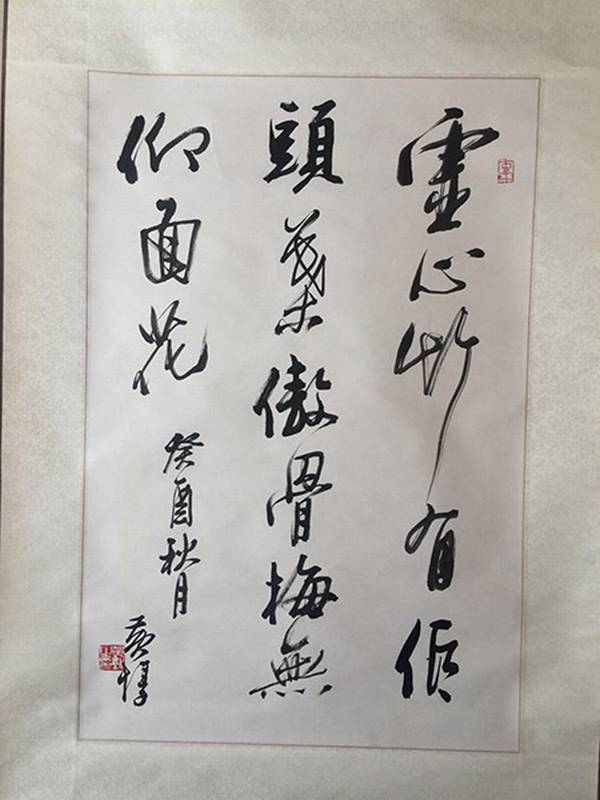 虛心竹有低
頭葉傲骨梅無
仰面花
癸酉秋月
黃惇